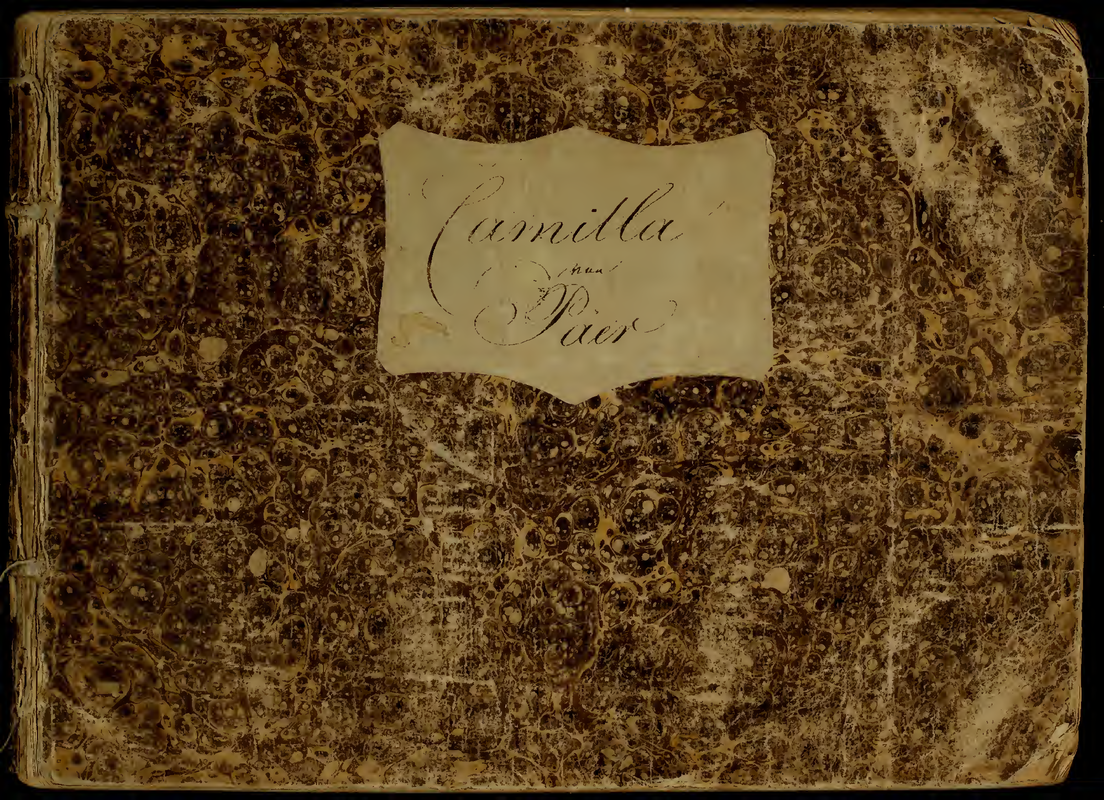 Camilla
von
Päer